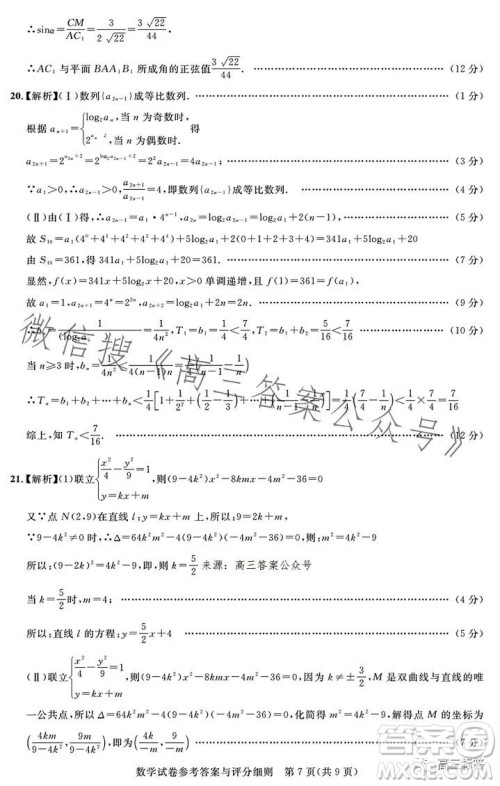 ∴sinα=CM/AC₁=3/(2√22)=3√22/44.
∴AC₁与平面BAA₁B₁所成角的正弦值3√22/44. ……(12分)
20.【解析】(Ⅰ)数列{a₂ₙ₋₁}成等比数列. ……(1分)
根据aₙ₊₁={log₂aₙ,当n为奇数时; 2^(aₙ₋₂),当n为偶数时 得
a₂ₙ₊₁=2^(a₂ₙ₊₂)=2^(log₂a₂ₙ₋₁+2)=2²a₂ₙ₋₁=4a₂ₙ₋₁; ……(3分)
∵a₁>0,∴a₂ₙ₋₁>0,∴a₂ₙ₊₁/a₂ₙ₋₁=4,即数列{a₂ₙ₋₁}成等比数列. ……(4分)
(Ⅱ)由(Ⅰ)得a₂ₙ₋₁=a₁·4ⁿ⁻¹,a₂ₙ=log₂a₂ₙ₋₁=log₂a₁+2(n-1), ……(5分)
故S₁₀=a₁(4⁰+4¹+4²+4³+4⁴)+5log₂a₁+2(0+1+2+3+4)=341a₁+5log₂a₁+20
由S₁₀=361得341a₁+5log₂a₁+20=361. ……(7分)
显然,f(x)=341x+5log₂x+20,x>0单调增,且f(1)=361=f(a₁),
故a₁=1,a₂ₙ₊₁=4ⁿ=2²ⁿ,a₂ₙ₊₂=log₂a₁+2n=2n. ……(9分)
=1/4n²,T₁=b₁=1/4<7/16, ……(10分)
当n≥3时,bₙ
∴Tₙ=b₁+b₂+…+bₙ
综上,知Tₙ<7/16. ……(12分)
21.【解析】(1)联立{x²/4-y²/9=1; y=kx+m,则(9-4k²)x²-8kmx-4m²-36=0
又∵点N(2,9)在直线l:y=kx+m上,所以:2k+m=9
∵9-4k²≠0时,∴Δ=64k²m²-4(9-4k²)(-4m²-36)=0,则:m²=4k²-9
所以:(9-2k)²=4k²-9,所以:k=5/2 来源:高三答案公众号
当k=5/2时,m=4; ……(4分)
所以:直线l的方程:y=5/2x+4 ……(5分)
(Ⅱ)联立{x²/4-y²/9=1; y=kx+m,则(9-4k²)x²-8kmx-4m²-36=0,因为k≠±3/2,M是双曲线与直线的唯
一公共点,所以:Δ=64k²m²-4(9-4k²)(-4m²-36)=0,化简得:m²=4k²-9,解得M的坐标为
(4km/(9-4k²),9m/(9-4k²)) ……(7分)
数学试卷参考答案与评分细则 第7页(共9页)
微信搜《高三答案公众号》